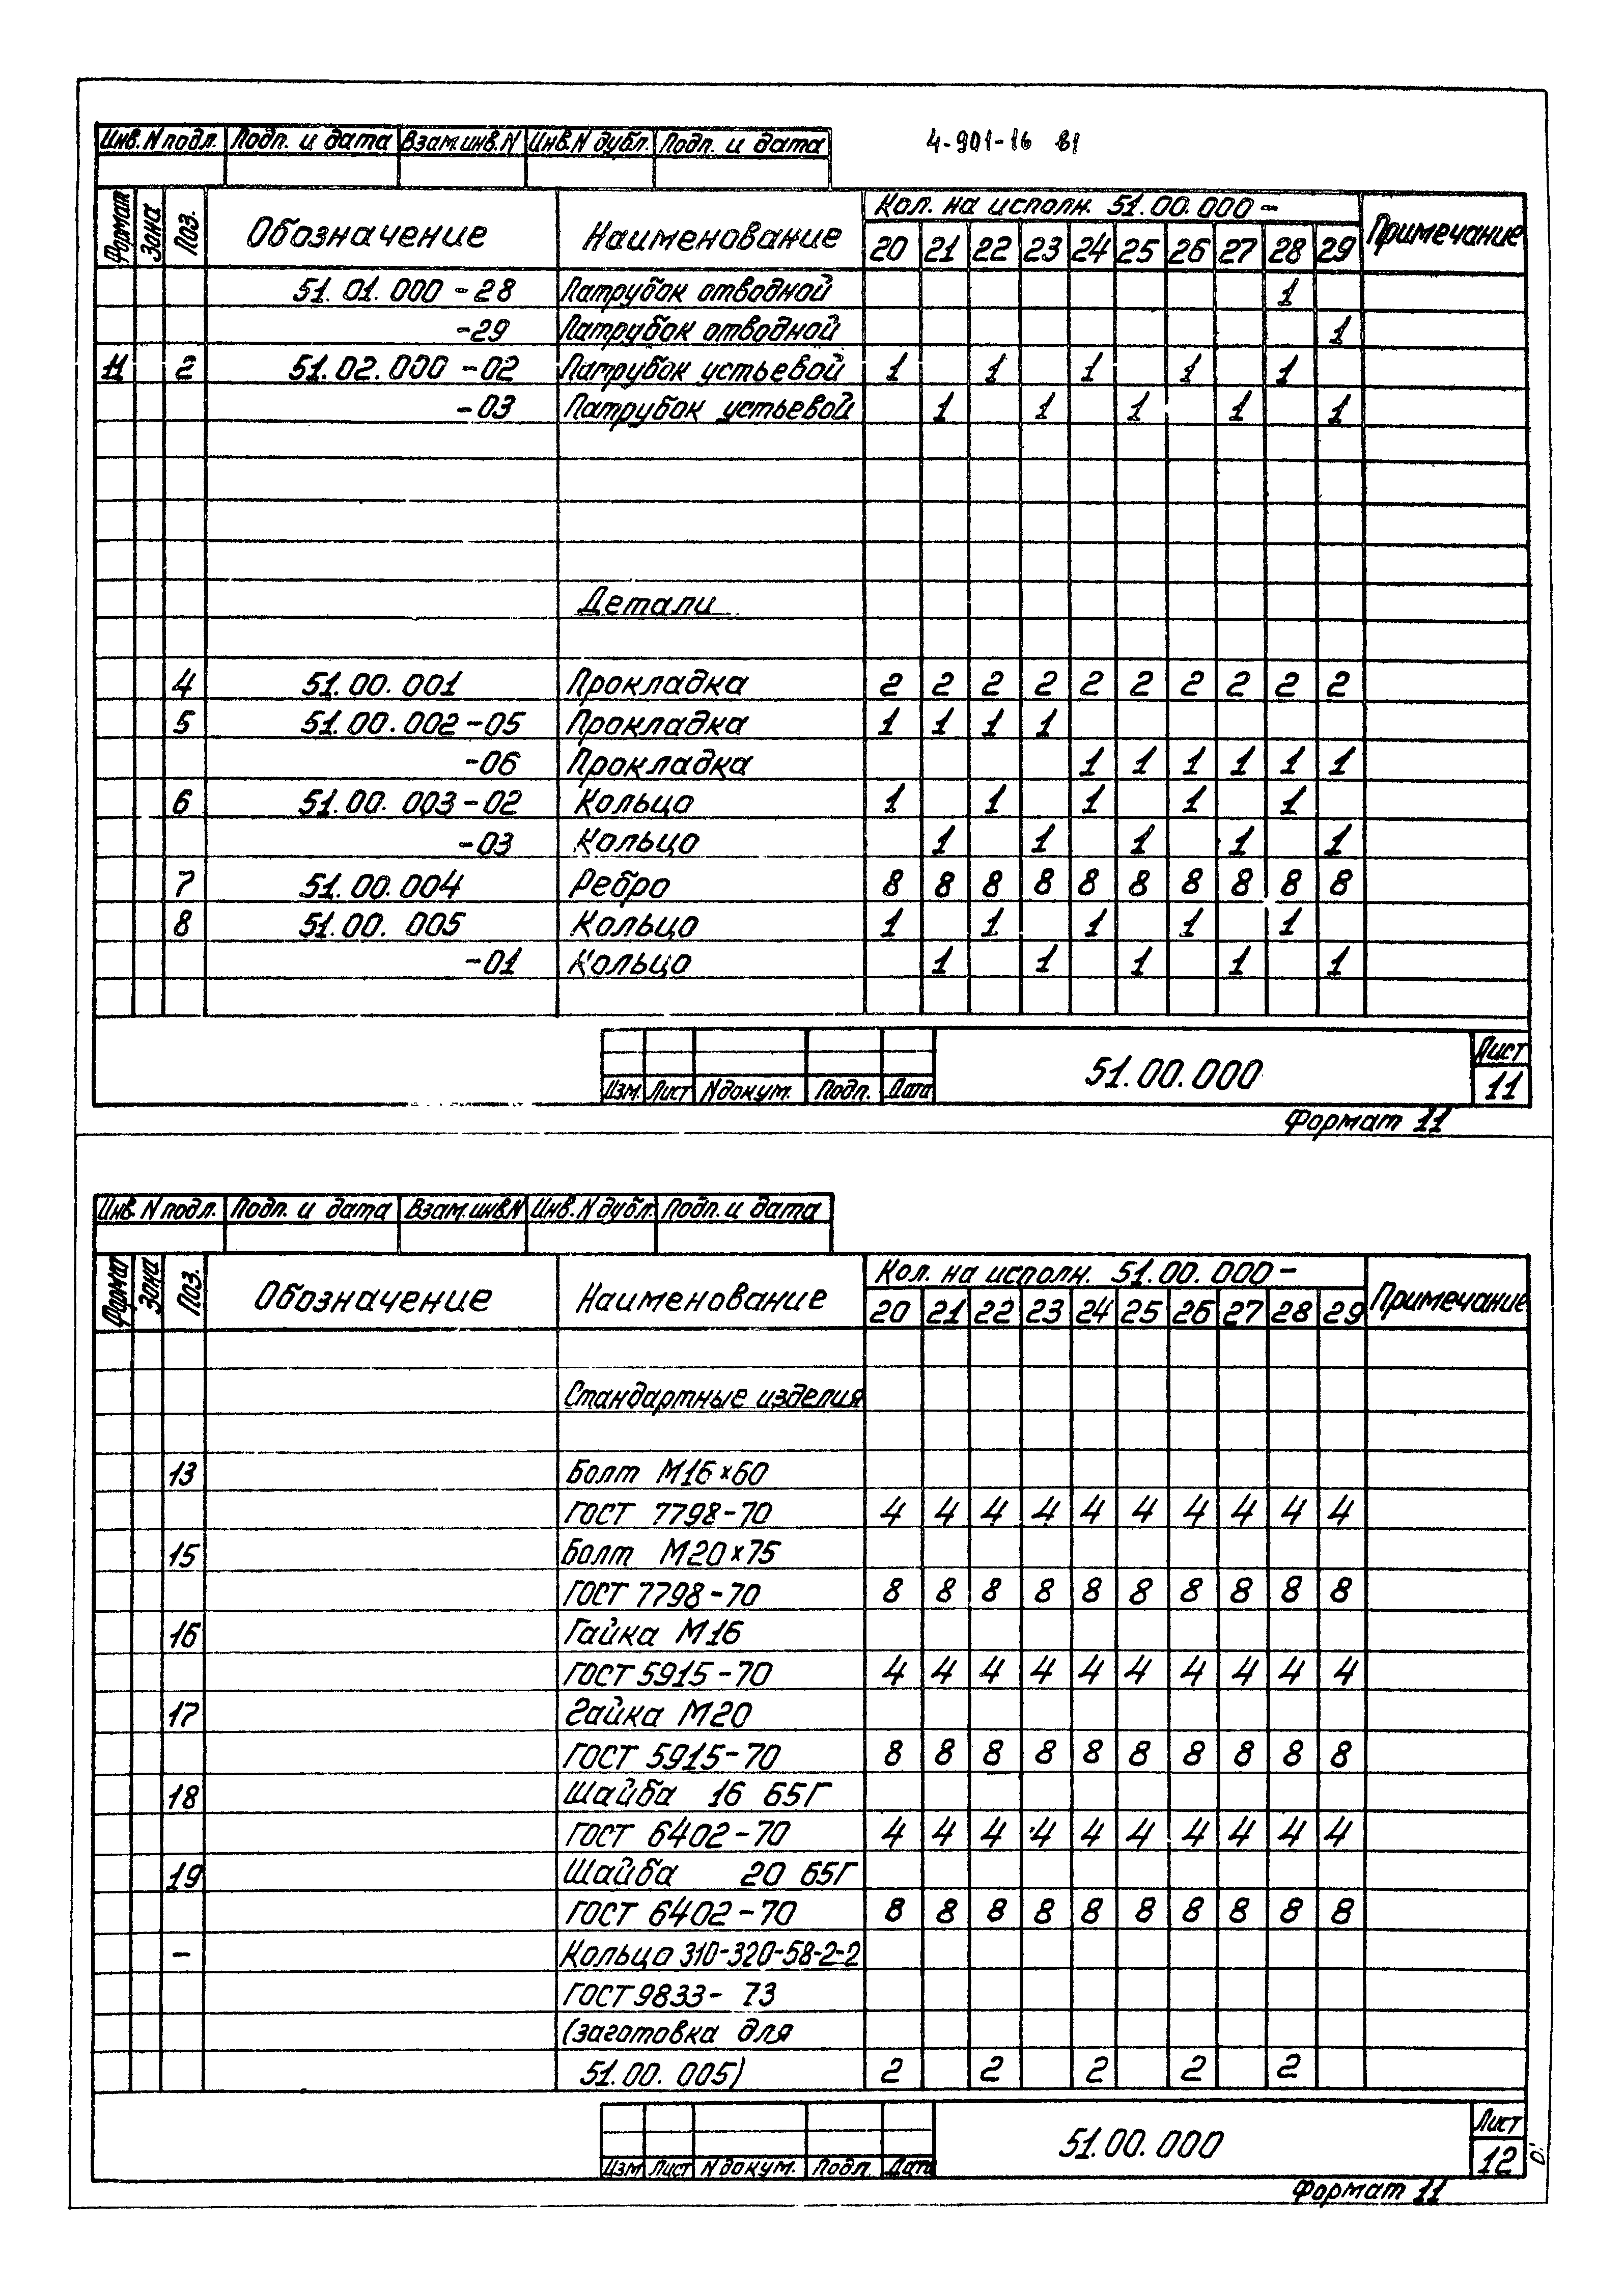 4-901-16 В1
Инв. N подл. Подп. и дата Взам. инв. N Инв. N дубл. Подп. и дата
Формат Зона Поз. Обозначение Наименование Кол. на исполн. 51.00.000 - Примечание
20 21 22 23 24 25 26 27 28 29
51.01.000 -28 Патрубок отводной 1
-29 Патрубок отводной 1
11 2 51.02.000 -02 Патрубок устьевой 1 1 1 1 1
-03 Патрубок устьевой 1 1 1 1 1
Детали
4 51.00.001 Прокладка 2 2 2 2 2 2 2 2 2 2
5 51.00.002-05 Прокладка 1 1 1 1
-06 Прокладка 1 1 1 1 1 1
6 51.00.003-02 Кольцо 1 1 1 1 1
-03 Кольцо 1 1 1 1 1
7 51.00.004 Ребро 8 8 8 8 8 8 8 8 8 8
8 51.00.005 Кольцо 1 1 1 1 1
-01 Кольцо 1 1 1 1 1
Изм. Лист N докум. Подп. Дата 51.00.000 Лист 11
Формат 11
Инв. N подл. Подп. и дата Взам. инв. N Инв. N дубл. Подп. и дата
Формат Зона Поз. Обозначение Наименование Кол. на исполн. 51.00.000 - Примечание
20 21 22 23 24 25 26 27 28 29
Стандартные изделия
13 Болт М16×60
ГОСТ 7798-70 4 4 4 4 4 4 4 4 4 4
15 Болт М20×75
ГОСТ 7798-70 8 8 8 8 8 8 8 8 8 8
16 Гайка М16
ГОСТ 5915-70 4 4 4 4 4 4 4 4 4 4
17 Гайка М20
ГОСТ 5915-70 8 8 8 8 8 8 8 8 8 8
18 Шайба 16 65Г
ГОСТ 6402-70 4 4 4 4 4 4 4 4 4 4
19 Шайба 20 65Г
ГОСТ 6402-70 8 8 8 8 8 8 8 8 8 8
- Кольцо 310-320-58-2-2
ГОСТ 9833- 73
(заготовка для
51.00.005) 2 2 2 2 2
Изм Лист N докум. Подп. Дата 51.00.000 Лист 12
Формат 11